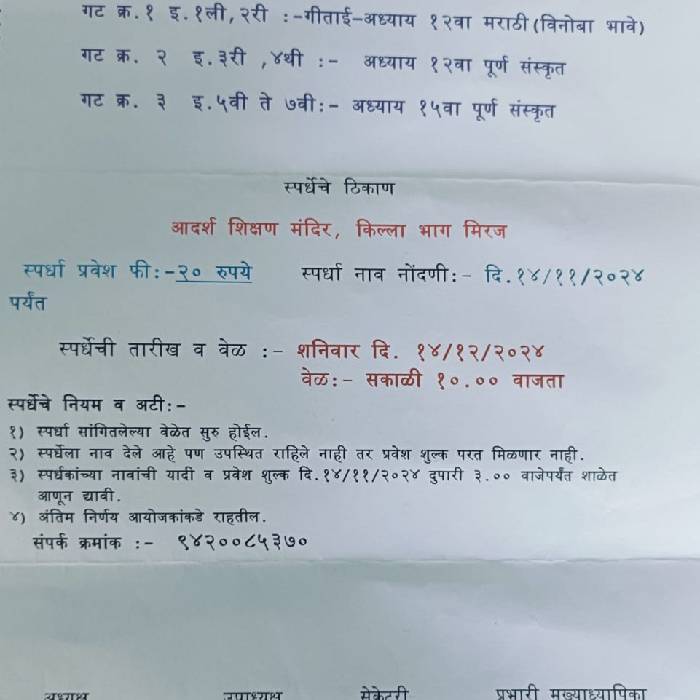 गट क्र.१ इ.१ली,२री :-गीताई-अध्याय १२वा मराठी(विनोबा भावे)
गट क्र. २ इ.३री ,४थी :- अध्याय १२वा पूर्ण संस्कृत
गट क्र. ३ इ.५वी ते ७वी:- अध्याय १५वा पूर्ण संस्कृत
स्पर्धेचे ठिकाण
आदर्श शिक्षण मंदिर, किल्ला भाग मिरज
स्पर्धा प्रवेश फी:-२० रुपये स्पर्धा नाव नोंदणी:- दि.१४/११/२०२४
पर्यंत
स्पर्धेची तारीख व वेळ :- शनिवार दि. १४/१२/२०२४
वेळ:- सकाळी १०.०० वाजता
स्पर्धेचे नियम व अटी:-
१) स्पर्धा सांगितलेल्या वेळेत सुरु होईल.
२) स्पर्धेला नाव देले आहे पण उपस्थित राहिले नाही तर प्रवेश शुल्क परत मिळणार नाही.
३) स्पर्धकांच्या नावांची यादी व प्रवेश शुल्क दि.१४/११/२०२४ दुपारी ३.०० वाजेपर्यंत शाळेत
आणून द्यावी.
४) अंतिम निर्णय आयोजकांकडे राहतील.
संपर्क क्रमांक :- ९४२००८५३७०
अध्यक्ष उपाध्यक्ष सेक्रेटरी प्रभारी मुख्याध्यापिका